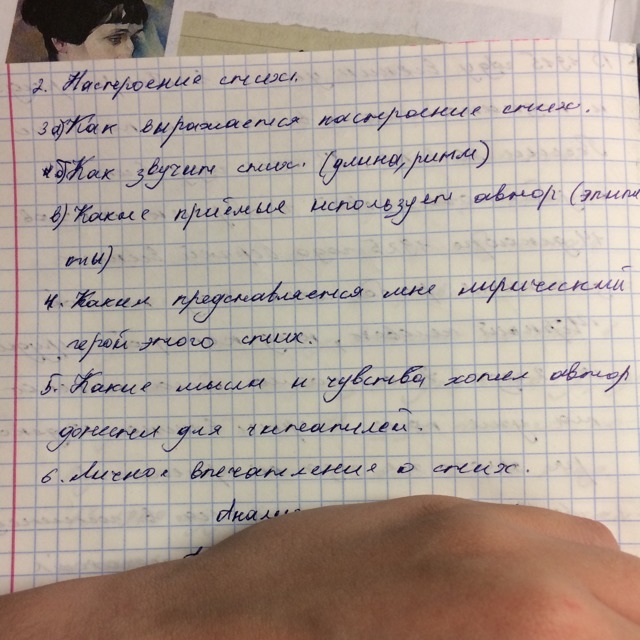 2. Настроение стих.
3 а) Как выражается настроение стих.
б) Как звучит стих. (длина, ритм)
в) Какие приёмые использует автор (эпите
ты)
4. Каким представляется мне лирический
герой этого стих.
5. Какие мысли и чувства хотел автор
донести для читателей.
6. Личное впечатление о стих.